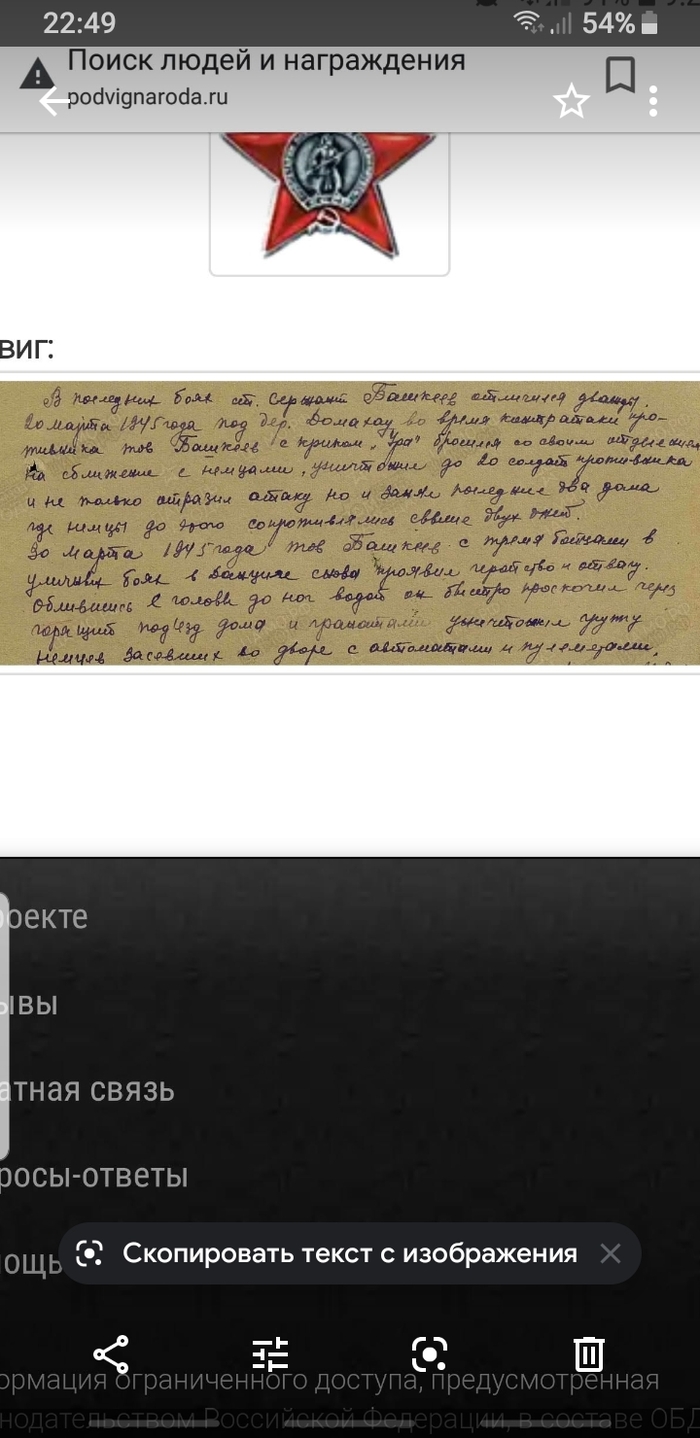 22:49
54%
Поиск людей и награждения
podvignaroda.ru
виг:
В последних боях ст. Сержант Башкеев отличился дважды.
20 марта 1945 года под дер. Домахау во время контратаки про-
тивника тов Башкеев с криком „Ура" бросился со своим отделением
на сближение с немцами, уничтожил до 20 солдат противника
и не только отразил атаку но и занял последние два дома
где немцы до этого сопротивлялись свыше двух дней.
30 марта 1945 года тов Башкеев с тремя бойцами в
уличных боях в Данциге снова проявил геройство и отвагу.
Облившись с головы до ног водой он быстро проскочил через
горящий подъезд дома и гранатами уничтожил группу
немцев засевших во дворе с автоматами и пулеметами.
роекте
ывы
атная связь
росы-ответы
мощь
Скопировать текст с изображения
ормация ограниченного доступа, предусмотренная
нодательством Российской Федерации, в составе ОБД